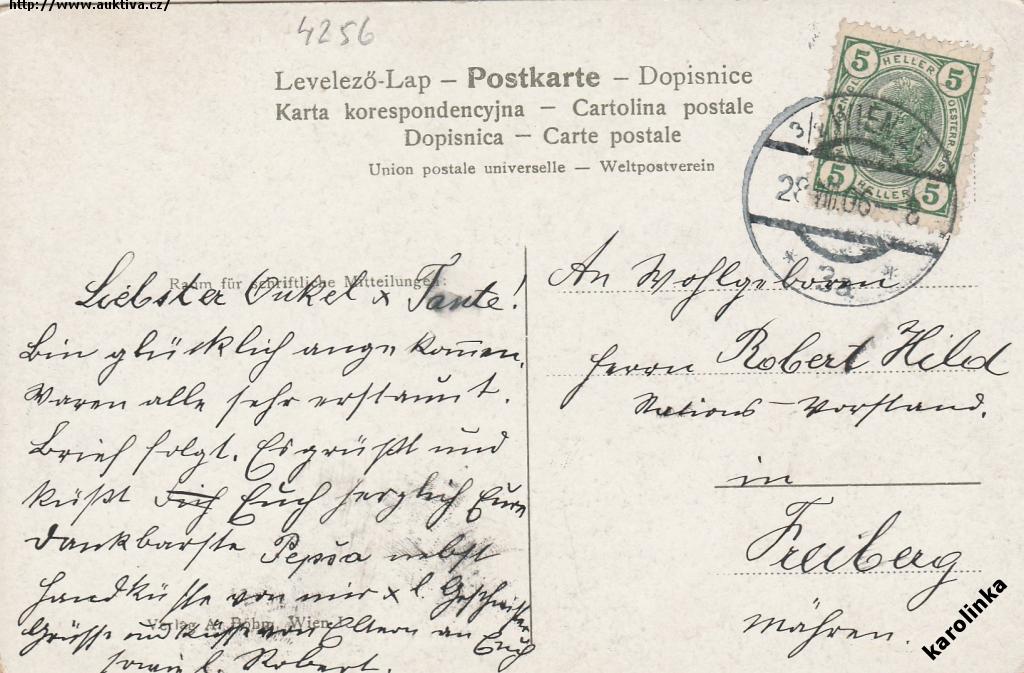 http://www.auktiva.cz/
4256
Levelező-Lap – Postkarte – Dopisnice
Karta korespondencyjna – Cartolina postale
Dopisnica – Carte postale
Union postale universelle – Weltpostverein
5 HELLER 5
5 HELLER 5
WIEN
28.VIII.06 – 8
* 3a *
Raum für schriftliche Mitteilungen:
Liebster Onkel x Tante!
Bin glücklich angekommen.
Waren alle sehr erstaunt.
Brief folgt. Es grüßt und
küßt Dich Euch herzlich Eure
dankbarste Pepša nebst
Handküsse von mir x l. Geschwister
Verlag A. Böhm, Wien
Grüsse und Küsse von Eltern an Euch
sowie l. Robert.
An Wohlgeboren
Herrn Robert Hild
Stations-Vorstand.
in
Freiberg
Mähren.
karolinka